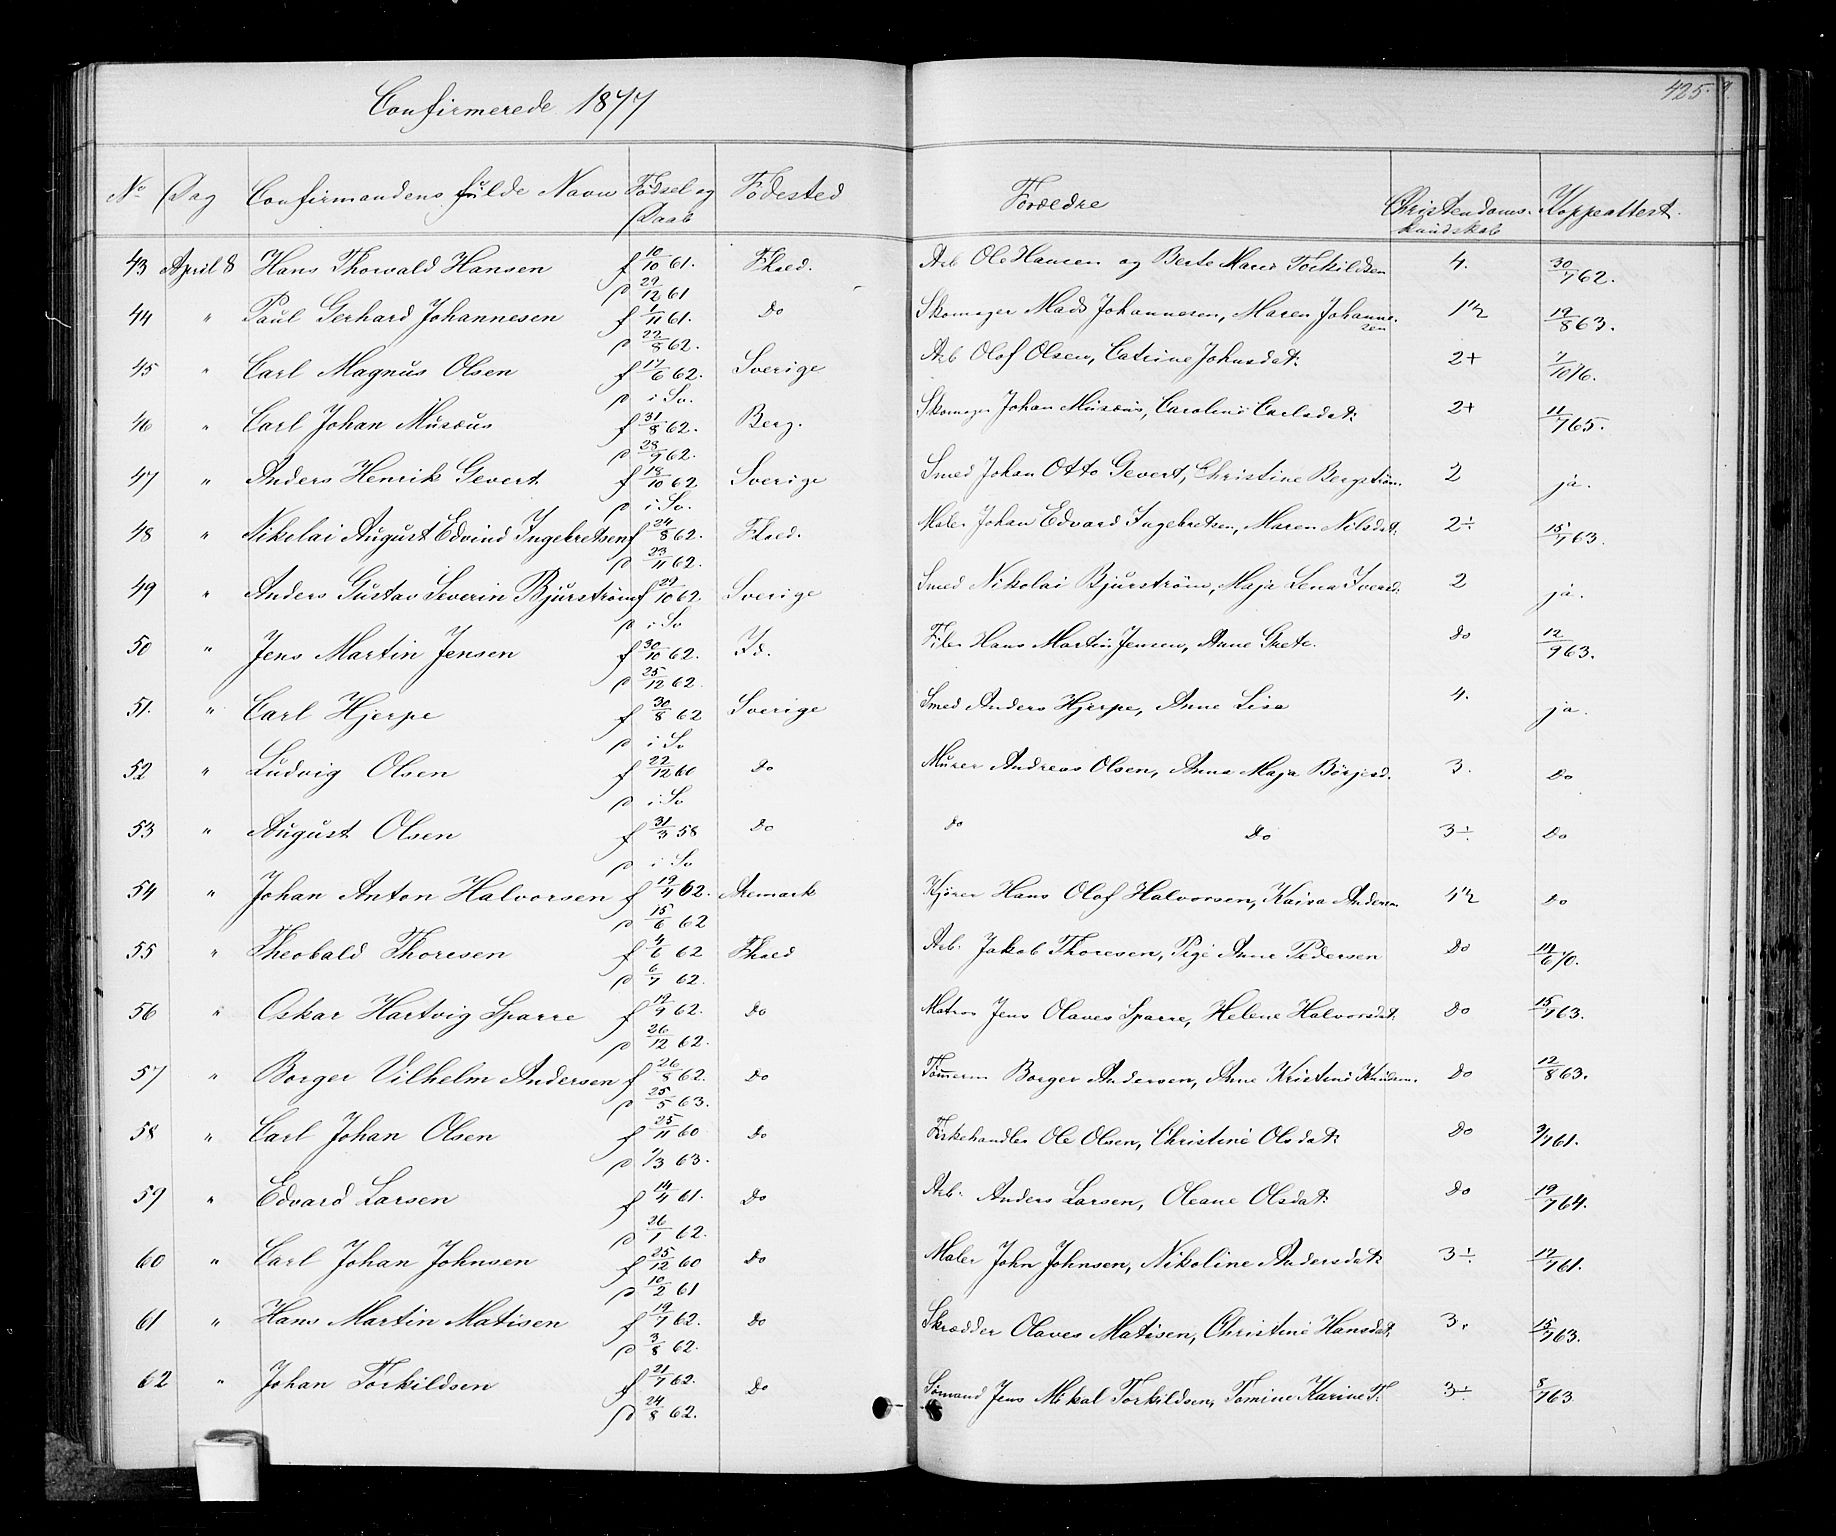 Confirmerede 1877
425.
No Dag Confirmandens fulde Navn Fødsel og Daab Fødested Forældre Christendoms-kundskab Koppeattest.
43 April 8 Hans Thorvald Hansen f 10/10 61. d 29/12 61 Fhald. Arb Ole Hansen og Berte Marie Torkildsen 4. 30/7 62.
44 " Paul Gerhard Johannesen f 1/11 61. d 22/8 62. Do Skomager Mads Johannesen, Maren Johannesen 1½ 19/8 63.
45 " Carl Magnus Olsen f 17/6 62. d i Sv. Sverige Arb Olof Olsen, Catrine Johnsdat: 2+ 7/10 76.
46 " Carl Johan Musæus f 31/8 62. d 28/9 62. Berg. Skomager Johan Musæus, Caroline Carlsdat: 2+ 11/7 65.
47 " Anders Henrik Gevert f 18/10 62. d i Sv. Sverige Smed Johan Otto Gevert, Christine Bergstrøm. 2 ja.
48 " Nikolai August Edvind Ingebretsen f 24/8 62. d 23/11 62. Fhald. Maler Johan Edvard Ingebretsen, Maren Nilsdat: 2÷ 15/7 63.
49 " Anders Gustav Severin Bjurstrøm f 29/10 62. d i Sv Sverige Smed Nikolai Bjurstrøm, Maja Lena Iversd: 2 ja.
50 " Jens Martin Jensen f 30/10 62. d 25/12 62. Id. Filer Hans Martin Jensen, Anne Grete. do 12/9 63.
51. " Carl Hjerpe f 30/8 62 d i Sv Sverige Smed Anders Hjerpe, Anne Lisa 4. ja.
52 " Ludvig Olsen f 22/12 60 d i Sv do Murer Andreas Olsen, Anna Maja Börjesd. 3. do
53 " August Olsen f 31/3 58 d i Sv do do do 3÷ do
54 " Johan Anton Halvorsen f 19/4 62. d 15/6 62 Aremark Kjører Hans Olof Halvorsen, Kaisa Andersn 4½ do
55 " Theobald Thoresen f 4/6 62 d 6/7 62. Fhald Arb. Jakob Thoresen, Pige Anne Pedersen do 14/6 70.
56 " Oskar Hartvig Sparre f 19/9 62. d 26/12 62. do Matros Jens Olaves Sparre, Helene Halvorsdat: do 15/7 63.
57 " Borger Vilhelm Andersen f 26/8 62. d 25/5 63. do Tømmerm Borger Andersen, Anne Kristine Knudsen. do 12/8 63.
58 " Carl Johan Olsen f 25/11 60 d 2/3 63. do Fiskehandler Ole Olsen, Christine Olsdat: do 3/7 61.
59 " Edvard Larsen f 14/4 61. d 26/1 62. do Arb. Anders Larsen, Oleane Olsdat: do 19/7 64.
60 " Carl Johan Johnsen f 25/12 60 d 10/2 61 do Maler John Johnsen, Nikoline Andersdat: 3÷ 17/7 61.
61 " Hans Martin Matisen f 19/7 62. d 3/8 62. do Skrædder Olaves Matisen, Christine Hansdat. 3. 15/7 63.
62 " Johan Torkildsen f 21/7 62. d 24/8 62. do Sømand Jens Mikal Torkildsen, Tomine Karine T. 3÷ 8/7 63